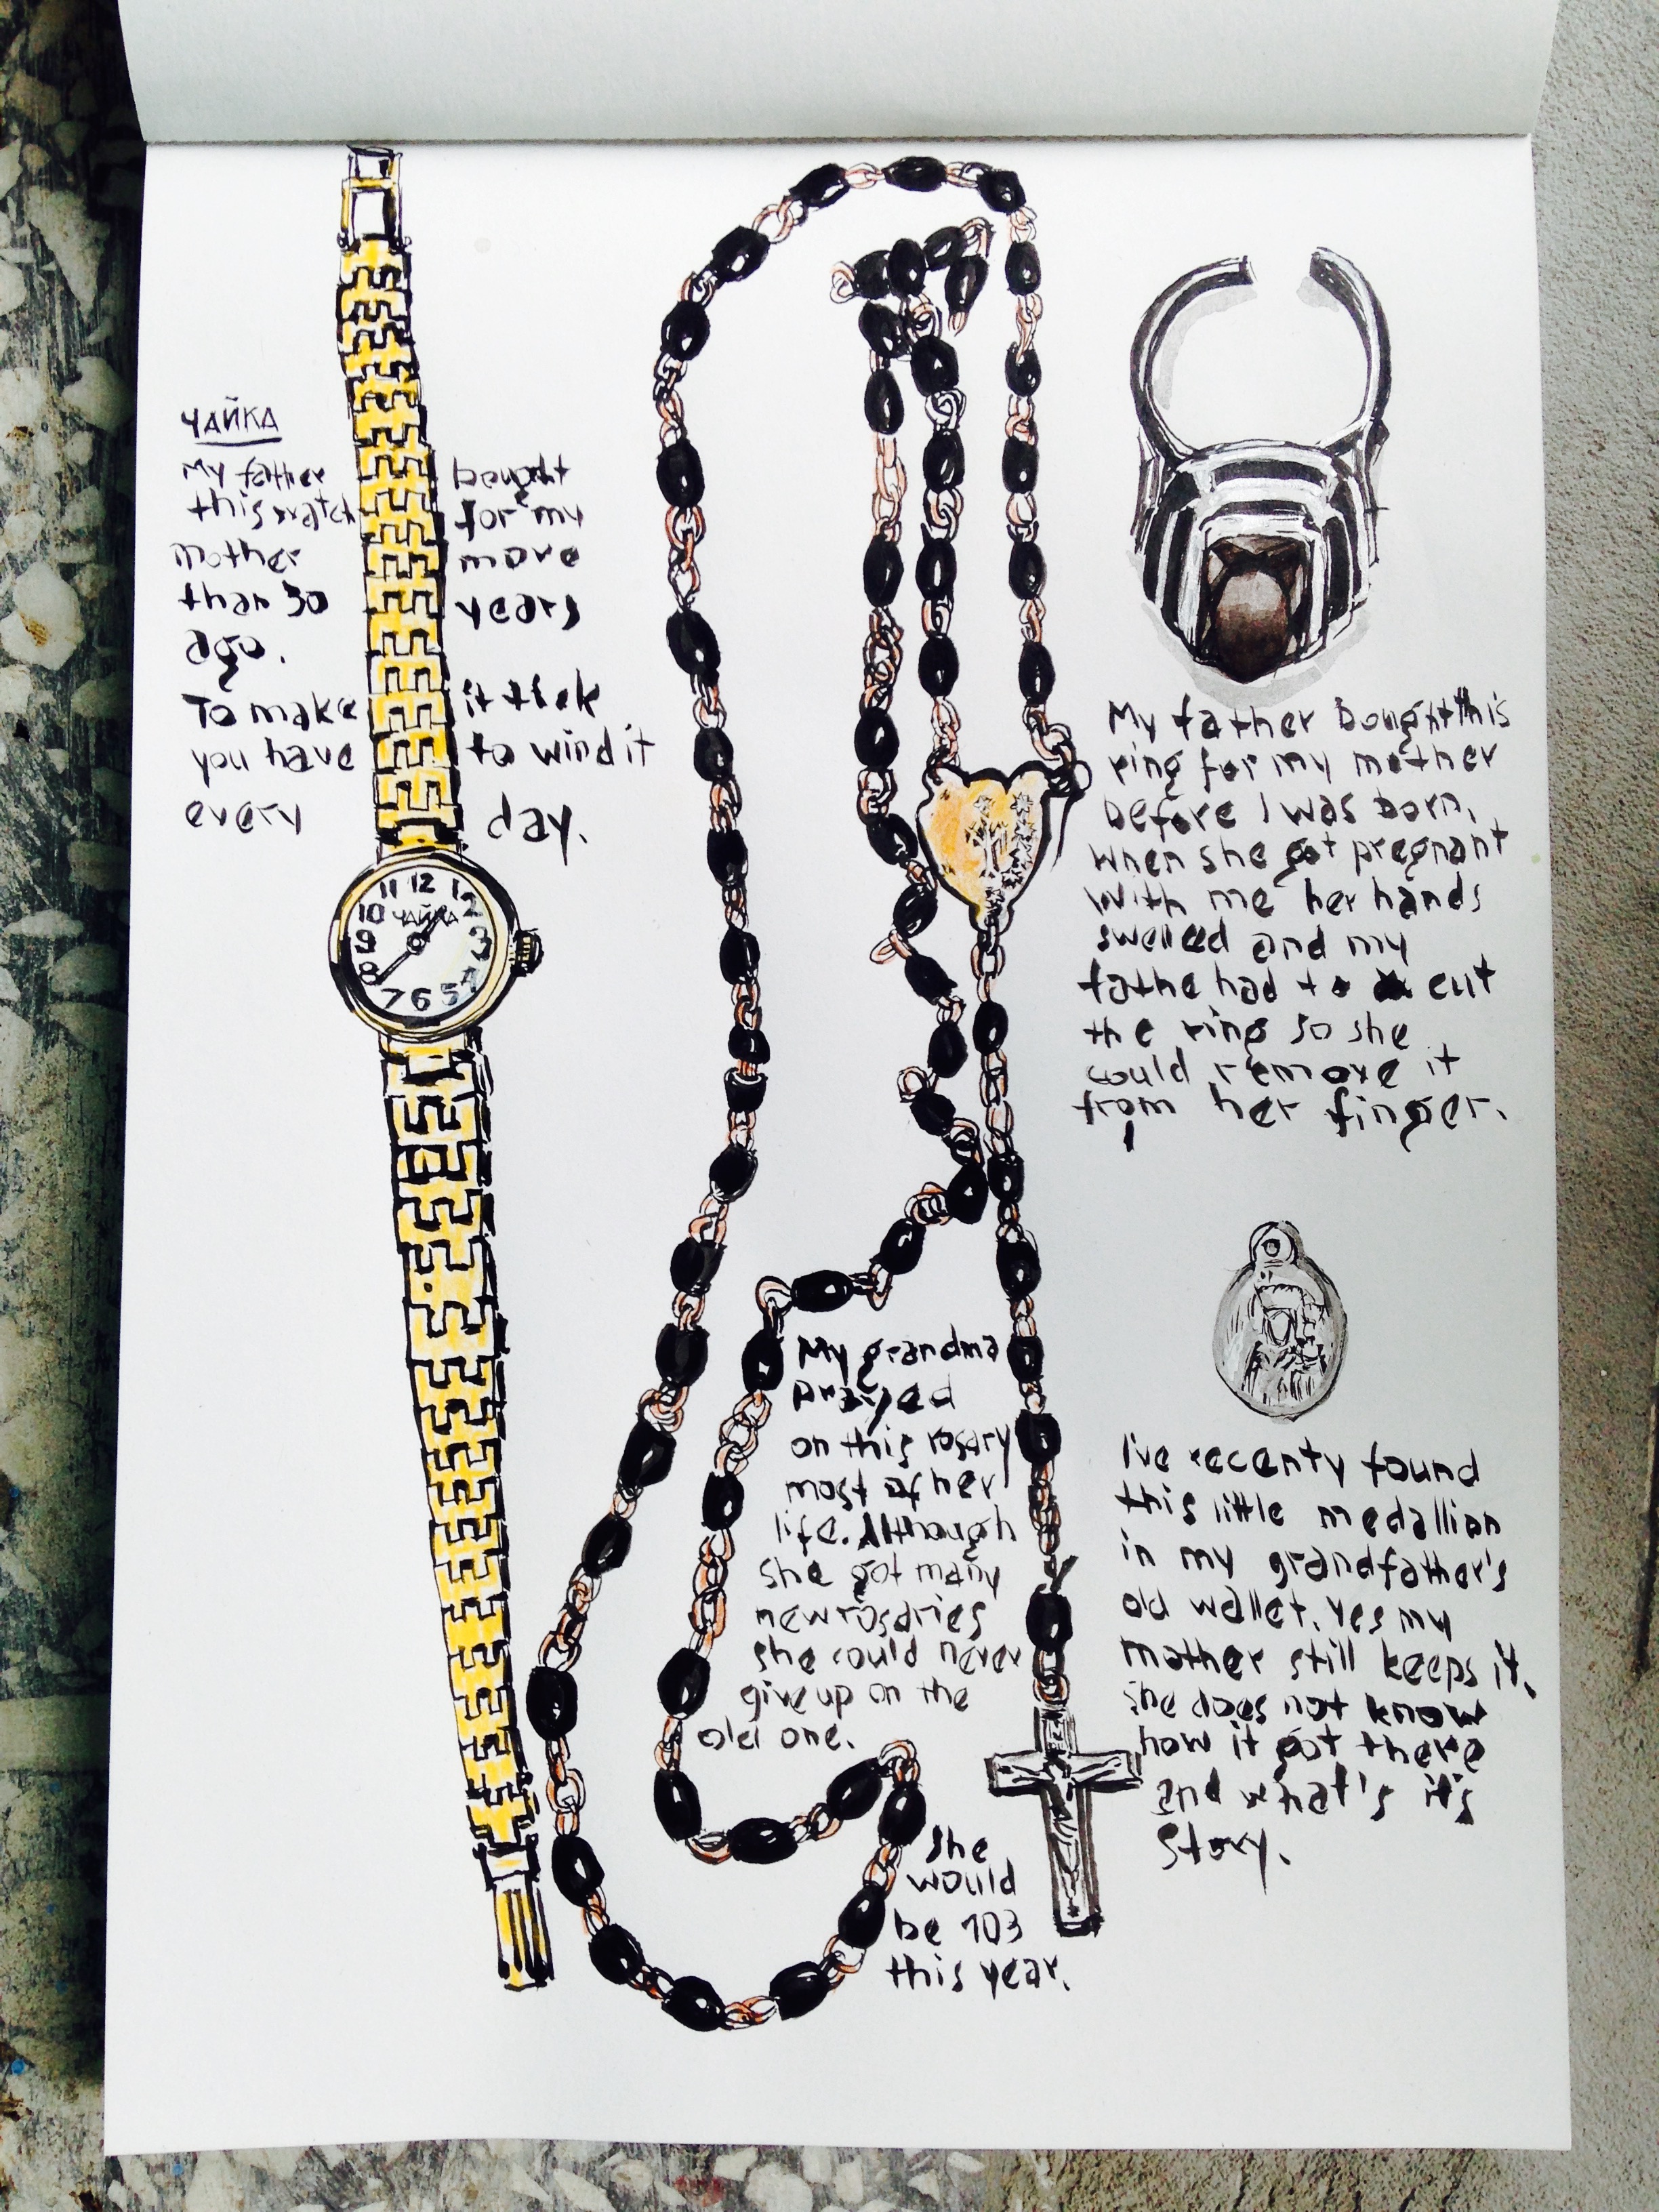 ЧАЙКА
My father bought
this watch for my
mother more
than 30 years
ago.
To make it tick
you have to wind it
every day.
11 12 1
10 2
ЧАЙКА
9 3
8 4
7 6 5
My father bought this
ring for my mother
before I was born,
when she got pregnant
with me her hands
swelled and my
fathe had to cut
the ring so she
could remove it
from her finger.
My grandma
prayed
on this rosary
most of her
life. Although
she got many
new rosaries
she could never
give up on the
old one.
She
would
be 103
this year.
I've recenty found
this little medallion
in my grandfather's
old wallet. Yes my
mother still keeps it.
She does not know
how it got there
and what's it's
story.